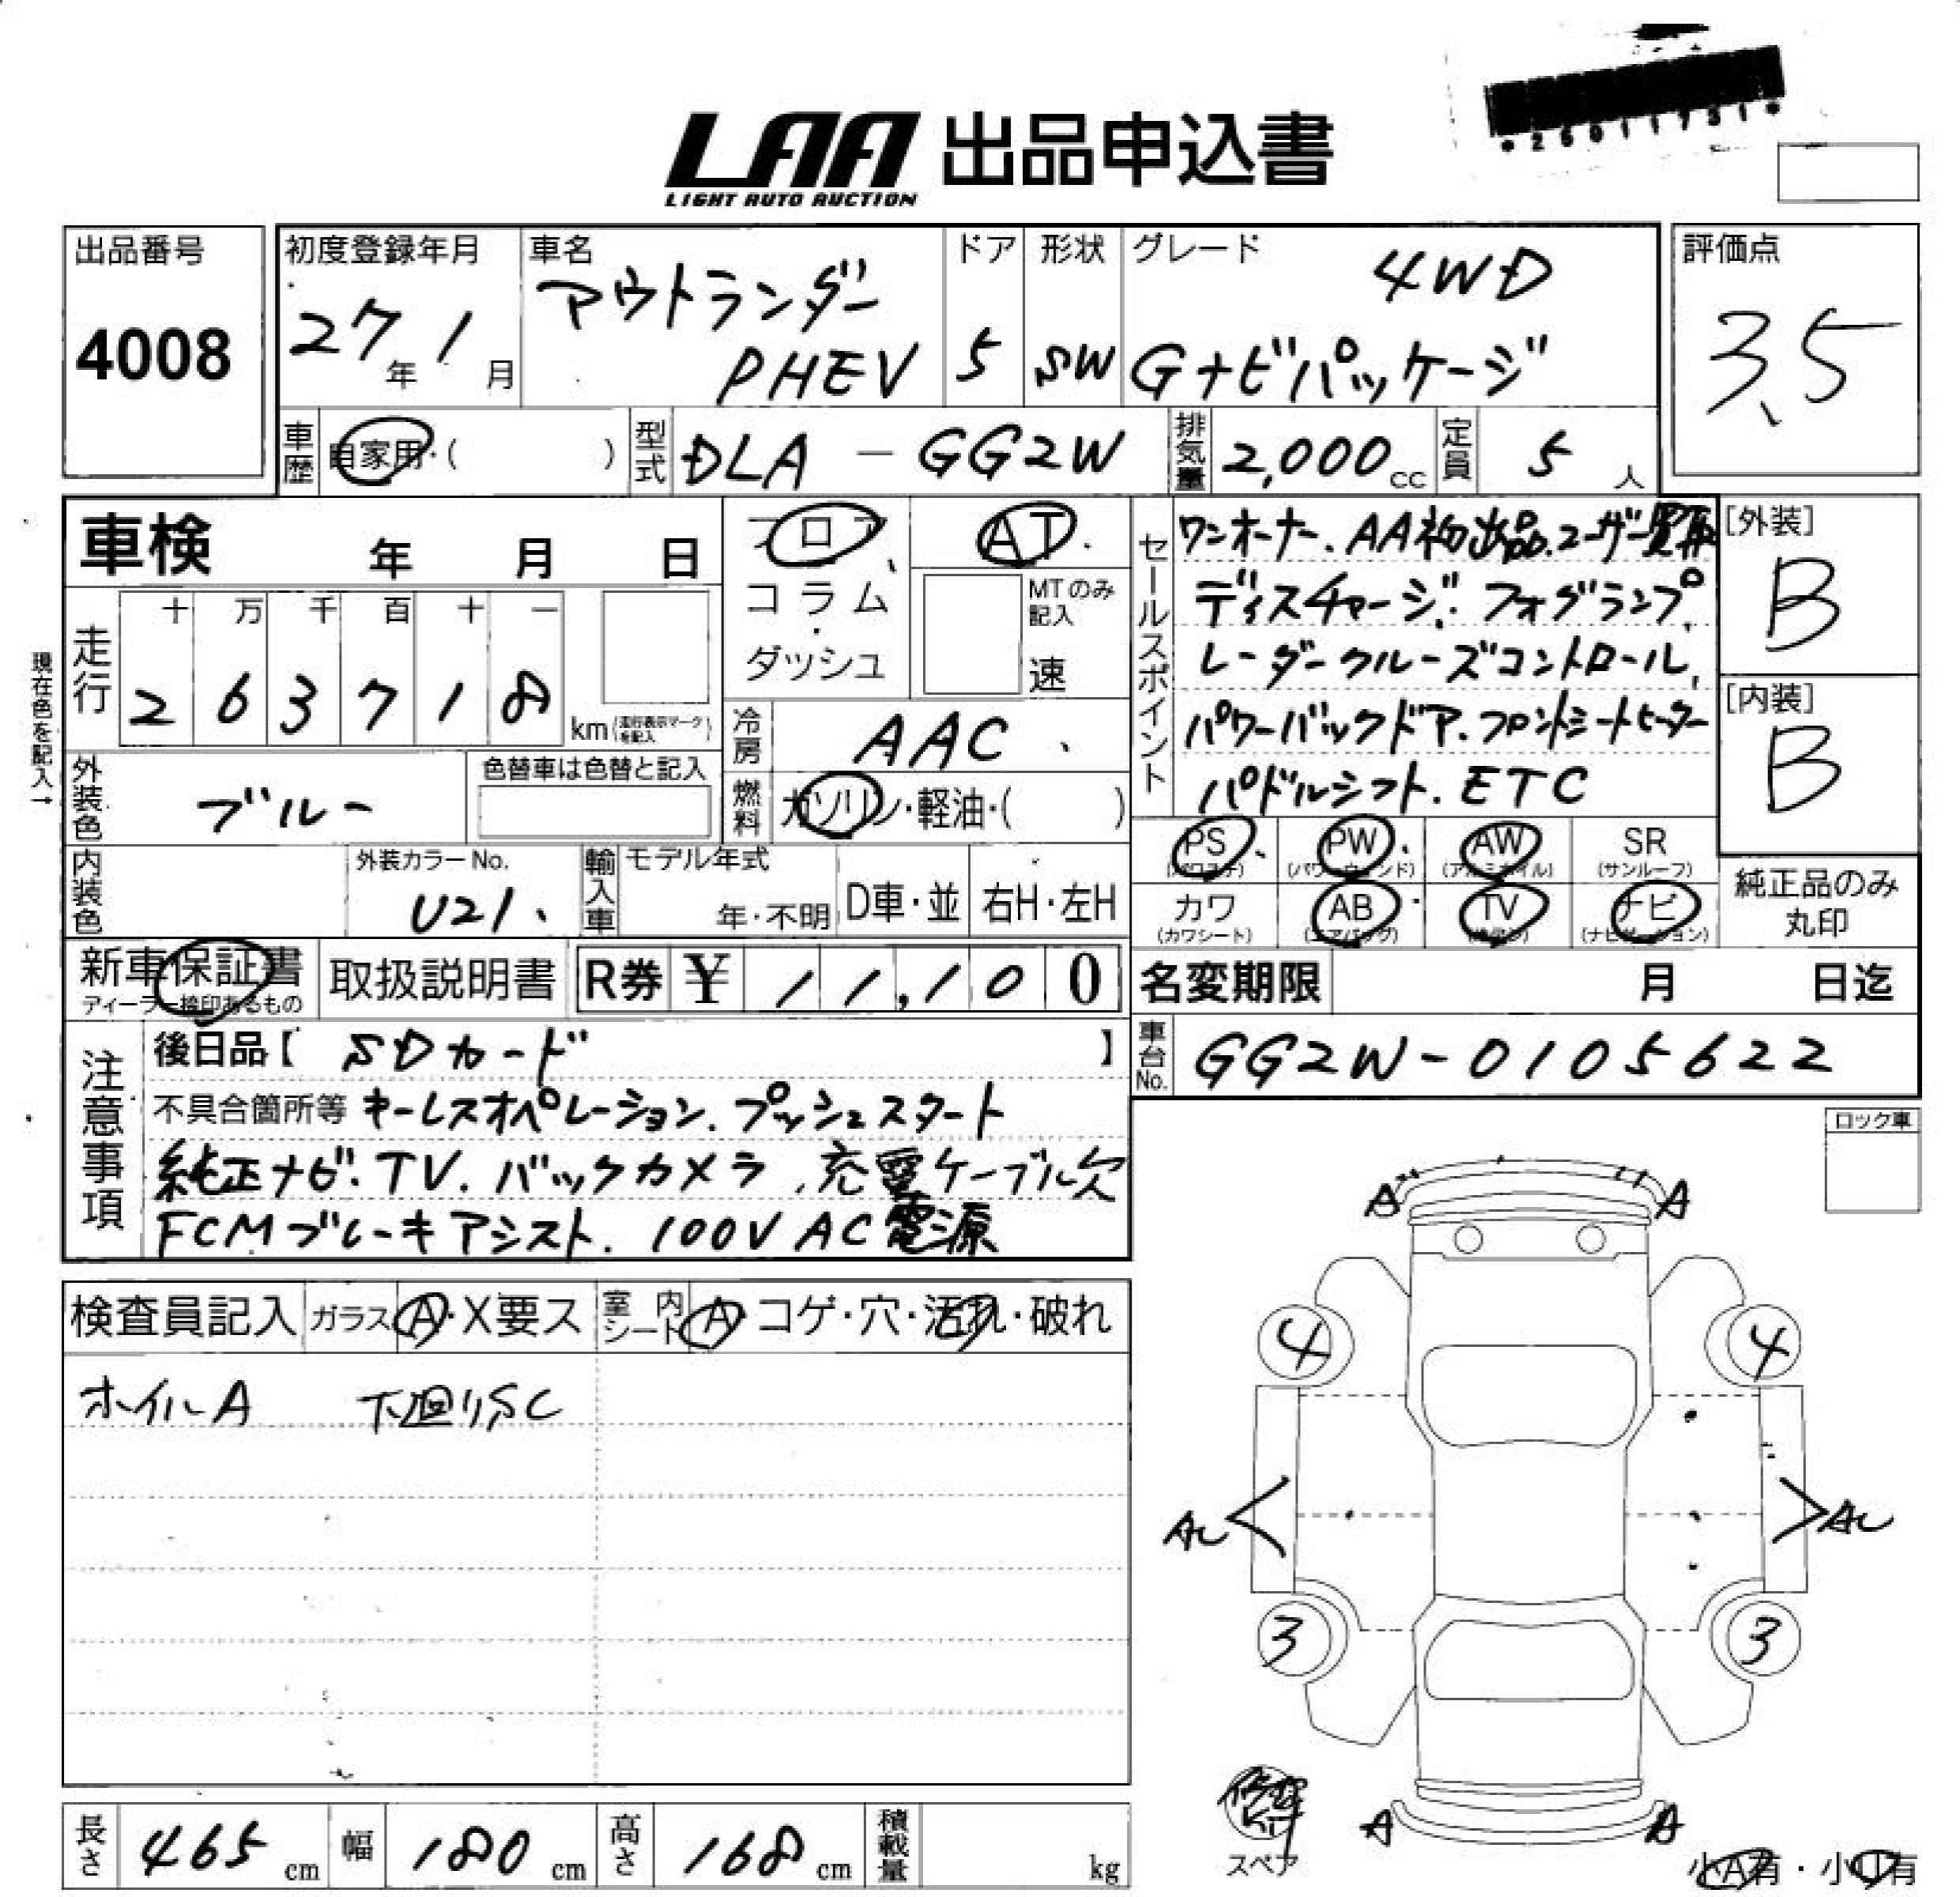 *26011731*
LAA 出品申込書
LIGHT AUTO AUCTION
出品番号
4008
初度登録年月
27年 1月
車名
アウトランダー
PHEV
ドア
5
形状
SW
グレード
4WD
Gナビパッケージ
評価点
3.5
車歴 自家用・( )
型式 DLA-GG2W
排気量 2,000cc
定員 5人
車検 年 月 日
フロア
コラム・
ダッシュ
AT
MTのみ記入
速
セールスポイント
ワンオーナー、AA初出品、ユーザー買取
ディスチャージ、フォグランプ、
レーダークルーズコントロール、
パワーバックドア、フロントシートヒーター
パドルシフト、ETC
[外装]
B
[内装]
B
現在色を記入→
走行
十 万 千 百 十 一
2 6 3 7 1 8
km (走行表示マークを記入)
冷房 AAC
外装色 ブルー
色替車は色替と記入
燃料 ガソリン・軽油・( )
内装色
外装カラーNo.
U21
輸入車
モデル年式
年・不明
D車・並
右H・左H
PS
(パワステ)
PW
(パワーウィンド)
AW
(アルミホイル)
SR
(サンルーフ)
カワ
(カワシート)
AB
(エアバッグ)
TV
ナビ
(ナビゲーション)
純正品のみ
丸印
新車保証書
ディーラー検印あるもの
取扱説明書
R券 ¥ 11,100
名変期限 月 日迄
注意事項
後日品【 SDカード 】
車台No. GG2W-0105622
不具合箇所等 キーレスオペレーション、プッシュスタート
純正ナビ、TV、バックカメラ、充電ケーブル欠
FCMブレーキアシスト、100V AC電源
ロック車
検査員記入
ガラス A・X要ス
室内シート A・コゲ・穴・汚れ・破れ
ホイルA 下廻りSC
A A
4 4
AU AU
3 3
A A
スペア
小A有・小U有
長さ 465cm
幅 180cm
高さ 168cm
積載量 kg